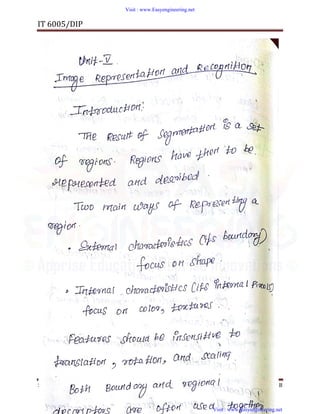 Visit : www.Easyengineering.net
IT 6005/DIP
Unit-V
Image Representation and Recognition
Introduction:
The Result of Segmentation is a set
of regions. Regions have then to be
represented and described.
Two main ways of Representing a
region.
• External characteristics (its boundary)
focus on shape.
• Internal characteristics (its internal Pixels)
focus on color, textures.
Features should be insensitive to
translation, rotation, and scaling
Both Boundary and regional
descriptors are often used together
Visit : www.Easyengineering.net